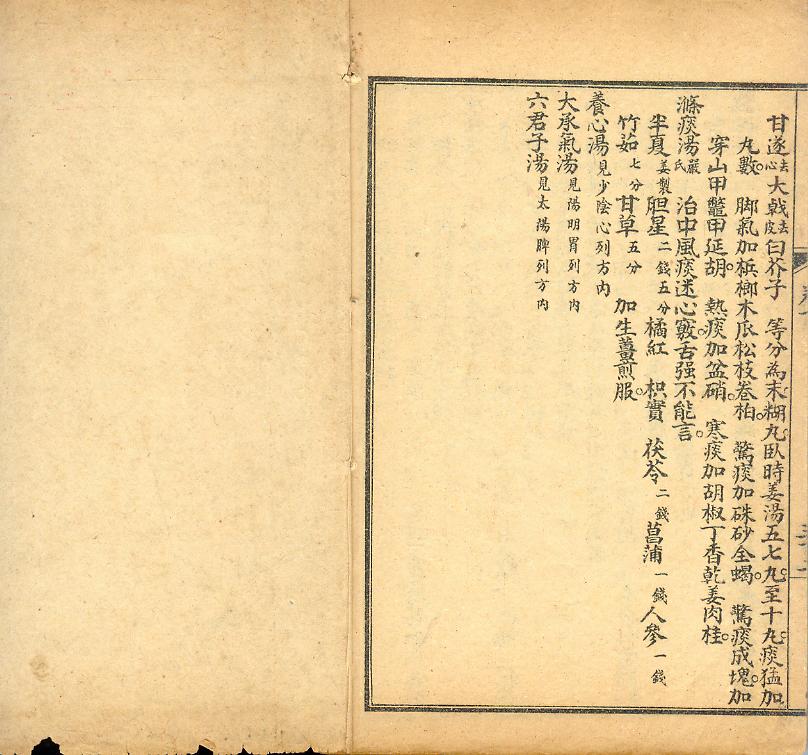 甘遂去心大戟去皮白芥子　等分為末糊丸臥時姜湯五七丸至十丸痰猛加
丸數　脚氣加梹榔木瓜松枝卷柏　驚痰加硃砂全蝎　驚痰成塊加
穿山甲鼈甲延胡　熱痰加盆硝　寒痰加胡椒丁香乾姜肉桂
滌痰湯嚴氏　治中風痰迷心竅舌强不能言
半夏姜製胆星二錢五分橘紅　枳實　茯苓二錢菖蒲一錢人參一錢
竹茹七分甘草五分　加生薑煎服
養心湯見少陰心列方內
大承氣湯見陽明胃列方內
六君子湯見太陽脾列方內